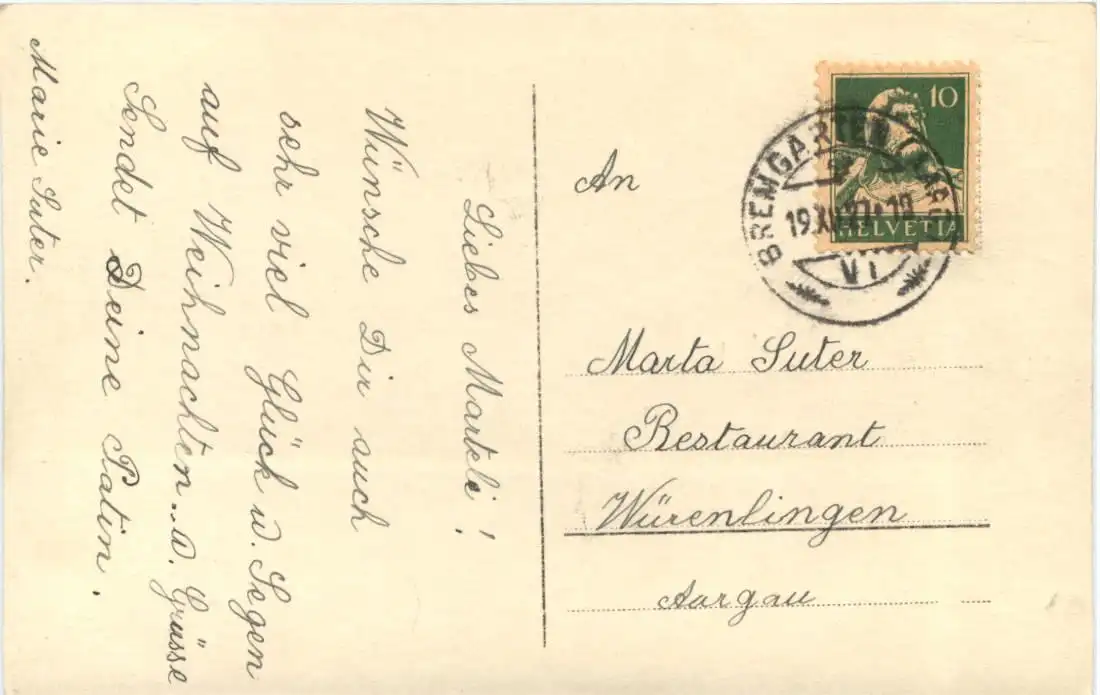 Liebes Marteli!
Wünsche Dir auch
sehr viel Glück u. Segen
auf Weihnachten.. u. Grüsse
Sendet Deine Patin.
Marie Suter.
10
HELVETIA
BREMGARTEN
VI
An
Marta Suter
Restaurant
Würenlingen
Aargau